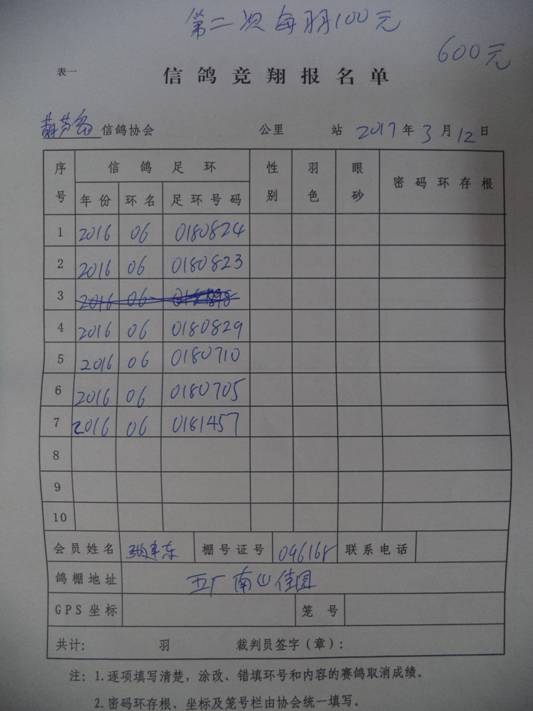 第二次每羽100元
600元
表一
信鸽竞翔报名单
葫芦岛信鸽协会 公里 站 2017年3月12日
序号 信鸽足环 性别 羽色 眼砂 密码环存根
年份 环名 足环号码
1 2016 06 0180824
2 2016 06 0180823
3 2016 06
4 2016 06 0180829
5 2016 06 0180710
6 2016 06 0180705
7 2016 06 0181457
8
9
10
会员姓名 棚号证号 046168 联系电话
鸽棚地址 五厂南山佳园
GPS坐标 笼号
共计: 羽 裁判员签字(章):
注: 1.逐项填写清楚,涂改、错填环号和内容的赛鸽取消成绩。
2.密码环存根、坐标及笼号栏由协会统一填写。